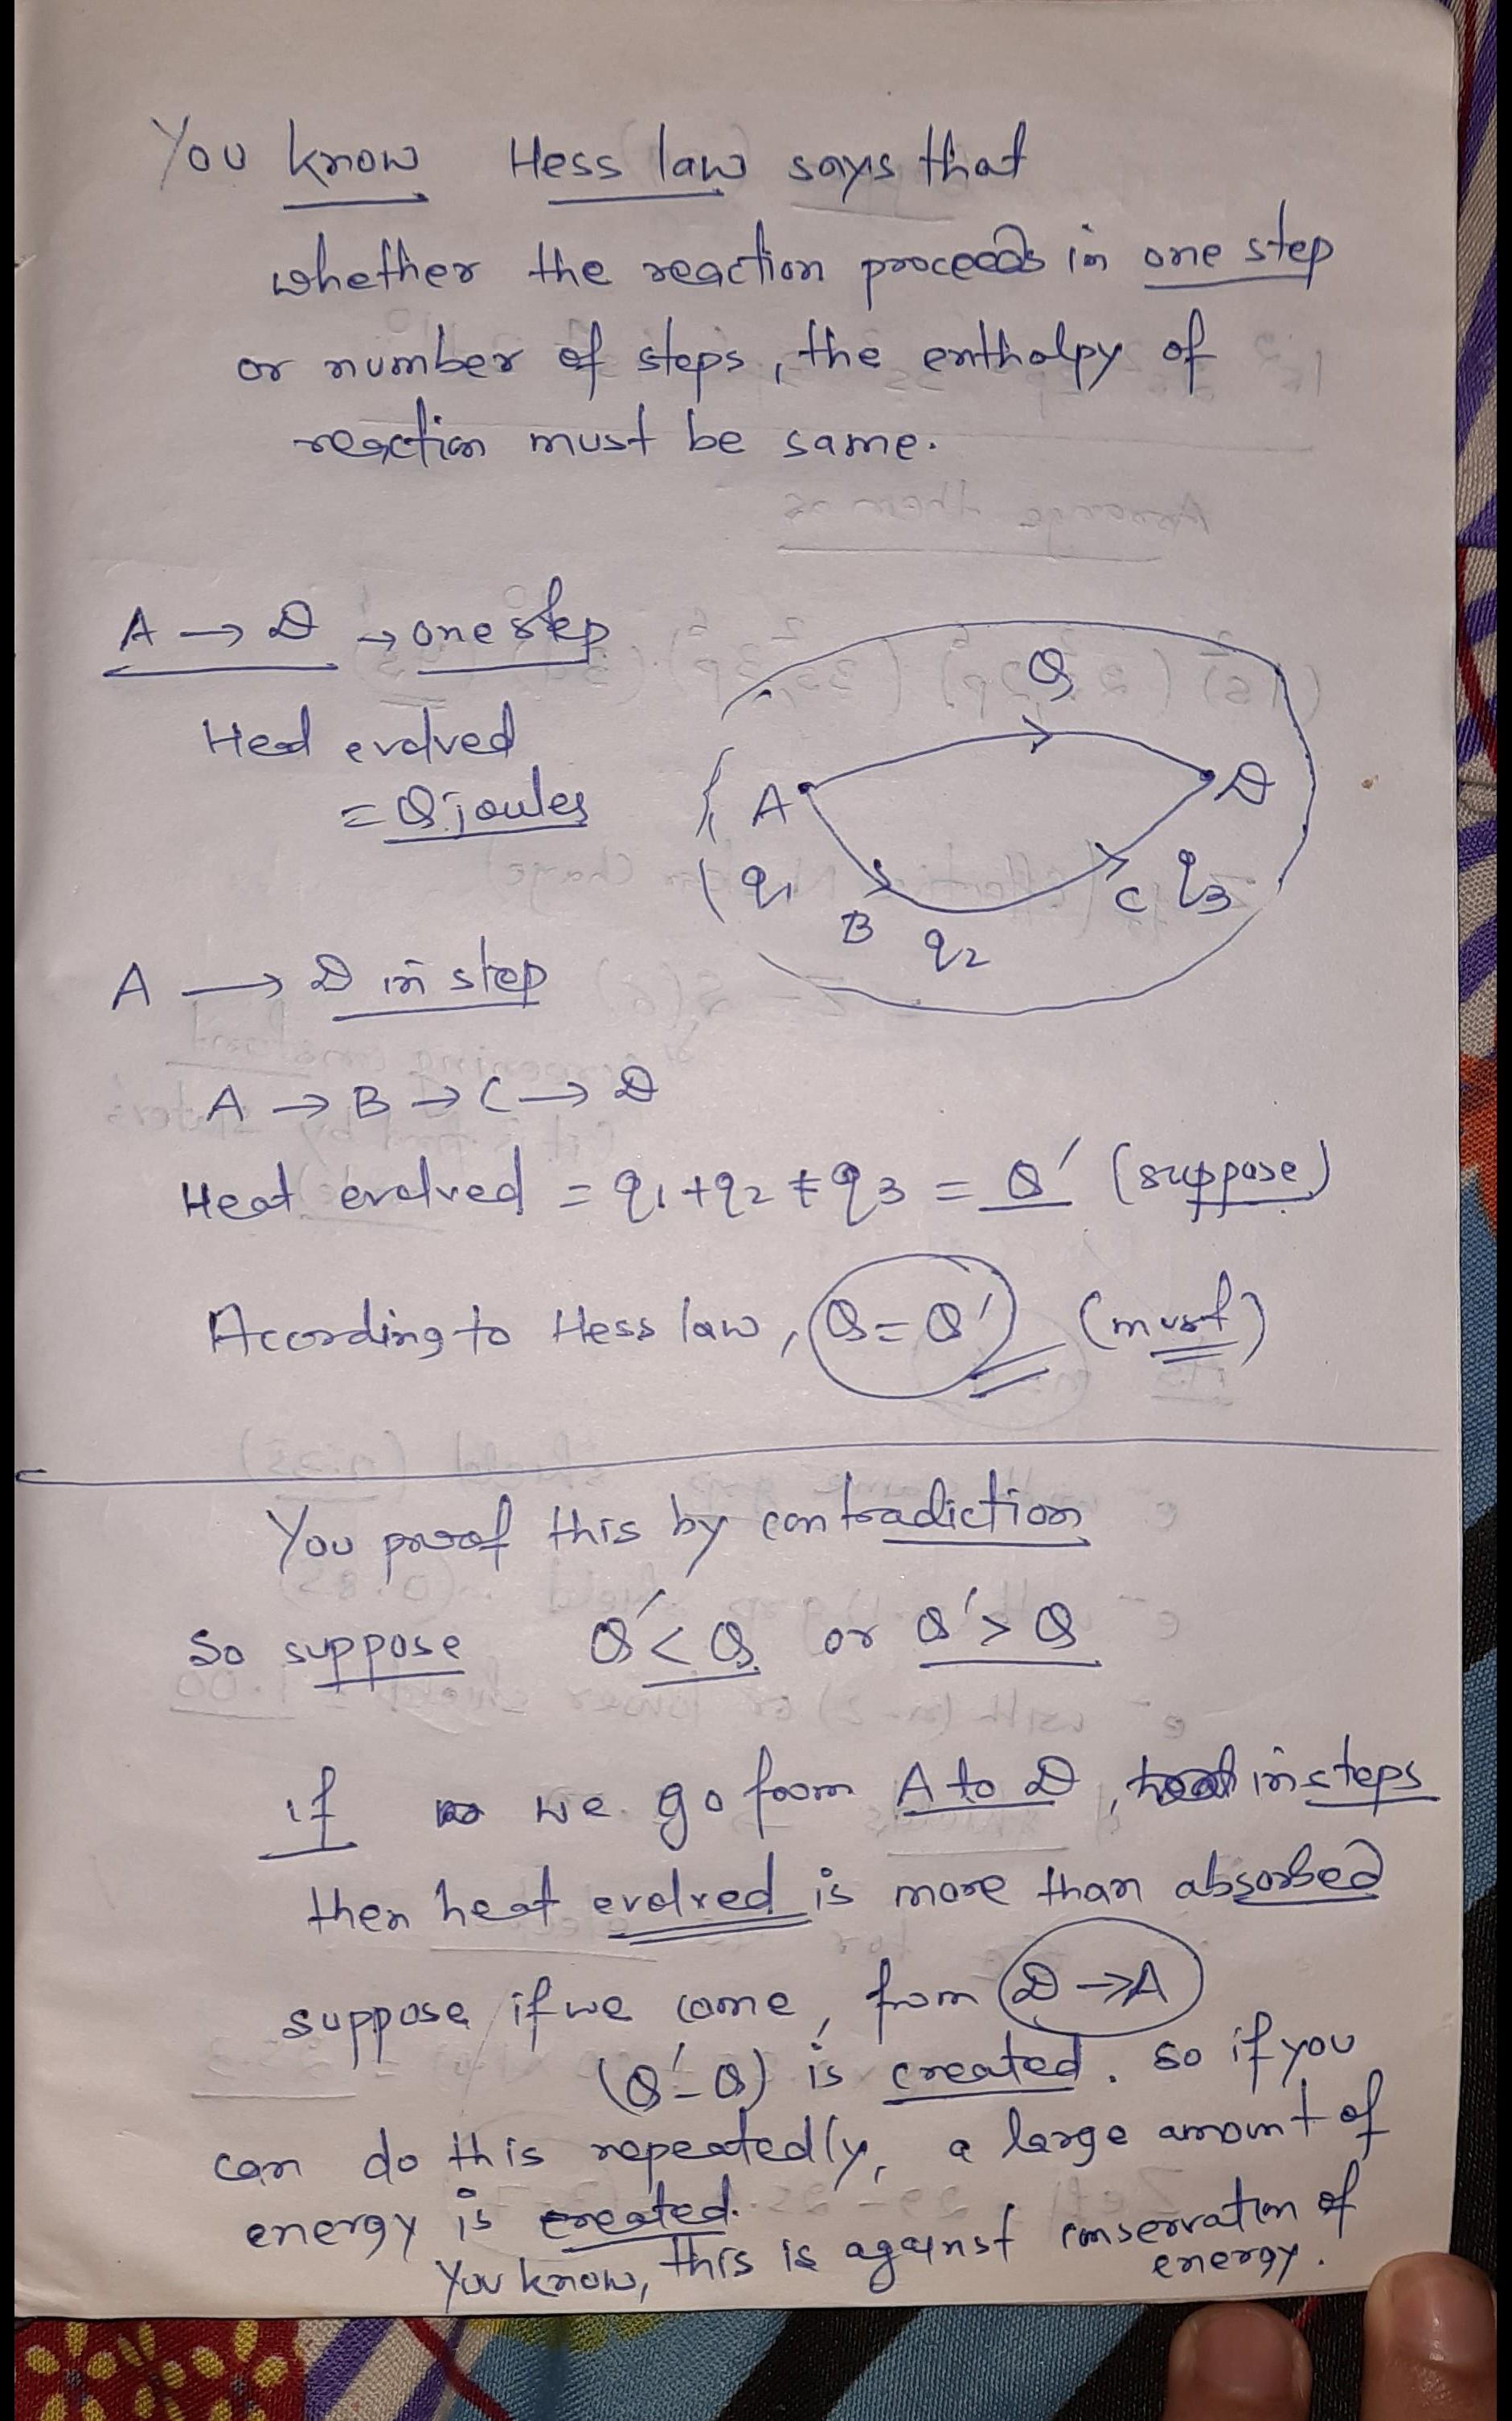 You know Hess law says that
whether the reaction proceeds in one step
or number of steps, the enthalpy of
reaction must be same.
A → D → one step
Heat evolved
= Q joules
Q
A
D
q1
B
q2
C
q3
A → D in step
A → B → C → D
Heat evolved = q1 + q2 + q3 = Q' (suppose)
According to Hess law, Q = Q' (must)
You proof this by contradiction
So suppose Q' < Q or Q' > Q
if we go from A to D, in steps
then heat evolved is more than absorbed
suppose if we come, from D → A
(Q' - Q) is created. so if you
can do this repeatedly, a large amount of
energy is created.
You know, this is against conservation of
energy.